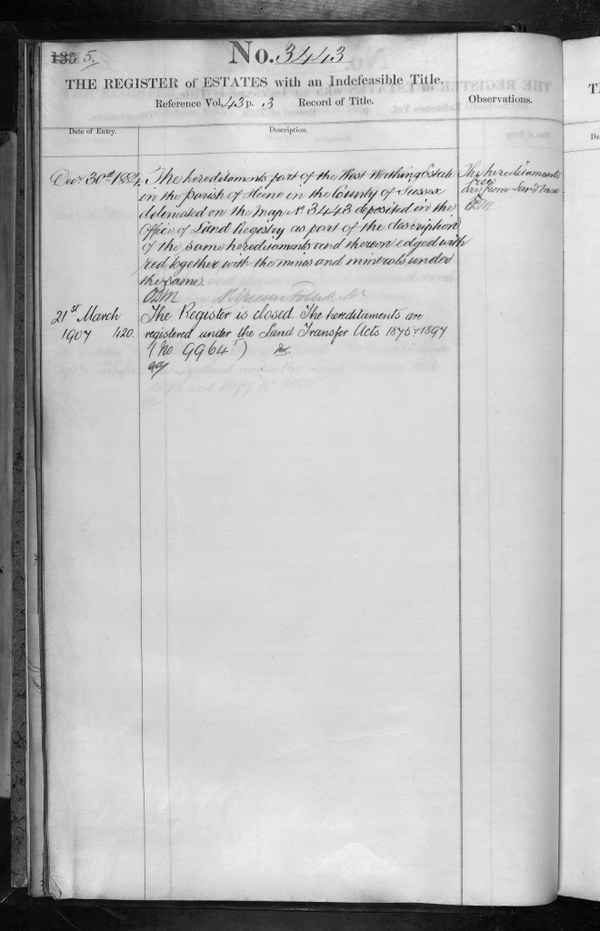 135 5.
No. 3443
THE REGISTER of ESTATES with an Indefeasible Title.
Reference Vol, 43 p. 3 Record of Title.
Observations.
Date of Entry.
Description.
Decr 30th 1884
The hereditaments part of the West Worthing Estate
in the Parish of Heene in the County of Sussex
delineated on the map No 3443 deposited in the
Office of Land Registry as part of the description
of the same hereditaments and thereon edged with
red together with the mines and minerals under
the same.
The hereditaments
are free from Land Tax
21st March
1907 420
The Register is closed. The hereditaments are
registered under the Land Transfer Acts 1875 & 1897
(No 9964)